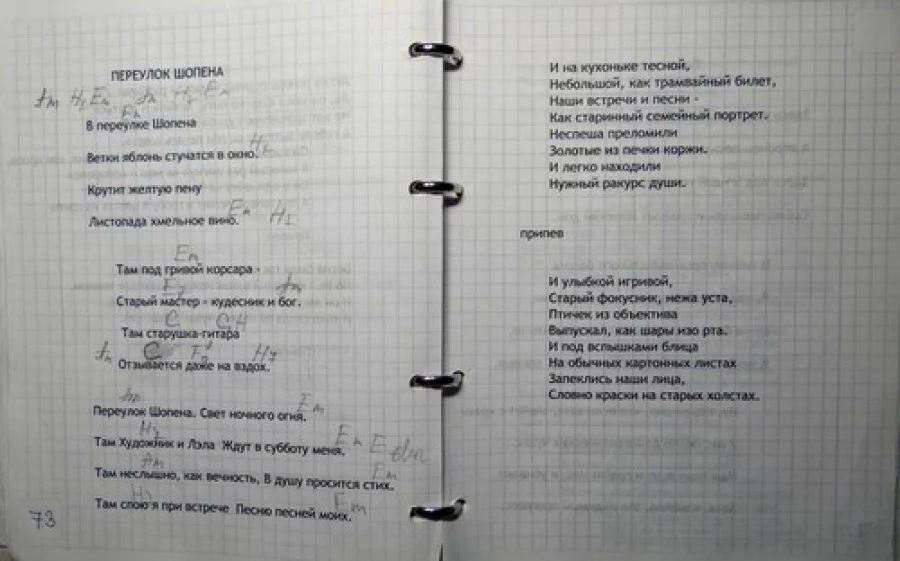 ПЕРЕУЛОК ШОПЕНА
Am H7 Em Am H7 Em
Em
В переулке Шопена
H7
Ветки яблонь стучатся в окно.
Крутит желтую пену
Em H7
Листопада хмельное вино.
Em
Там под гривой корсара -
E7 Am
Старый мастер - кудесник и бог.
C
Там старушка-гитара
Am C H7
Отзывается даже на вздох.
Am Em
Переулок Шопена. Свет ночного огня.
H7 Em
Там Художник и Лэла Ждут в субботу меня.
Am Em
Там неслышно, как вечность, В душу просится стих.
H7 Em
Там спою я при встрече Песню песней моих.
73
И на кухоньке тесной,
Небольшой, как трамвайный билет,
Наши встречи и песни -
Как старинный семейный портрет.
Неспеша преломили
Золотые из печки коржи.
И легко находили
Нужный ракурс души.
припев
И улыбкой игривой,
Старый фокусник, нежа уста,
Птичек из объектива
Выпускал, как шары изо рта.
И под вспышками блица
На обычных картонных листах
Запеклись наши лица,
Словно краски на старых холстах.